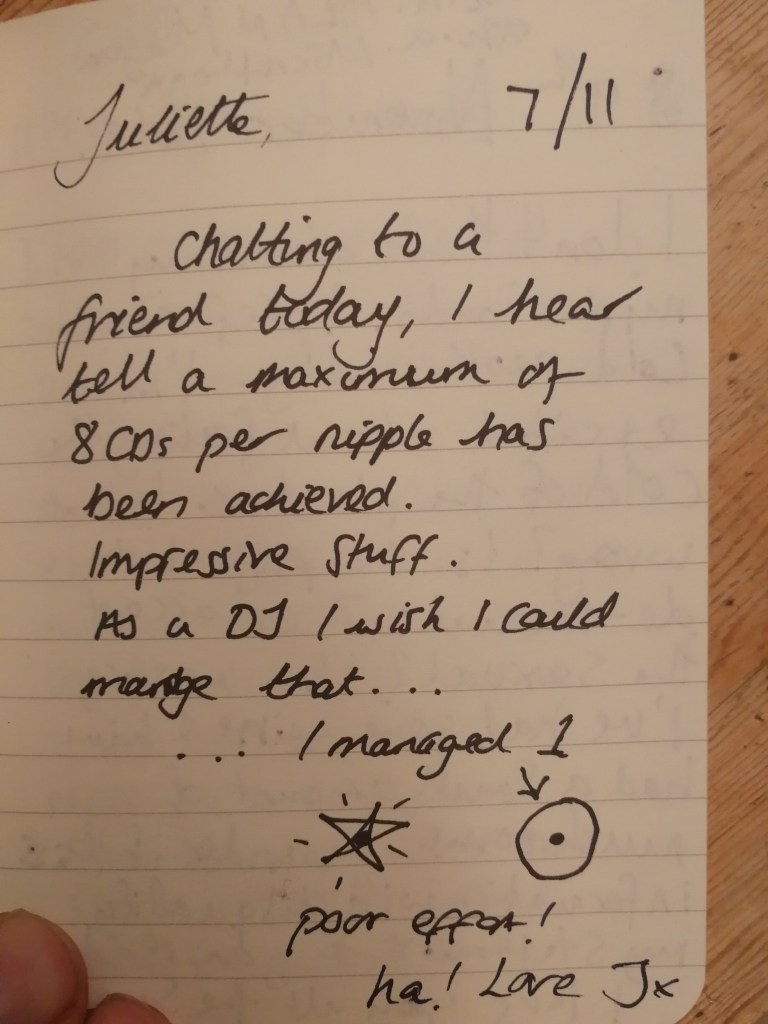 Juliette, 7/11
Chatting to a
friend today, I hear
tell a maximum of
8 CDs per nipple has
been achieved.
Impressive stuff.
As a DJ I wish I could
manage that...
... I managed 1
poor effort!
ha! Love Jx